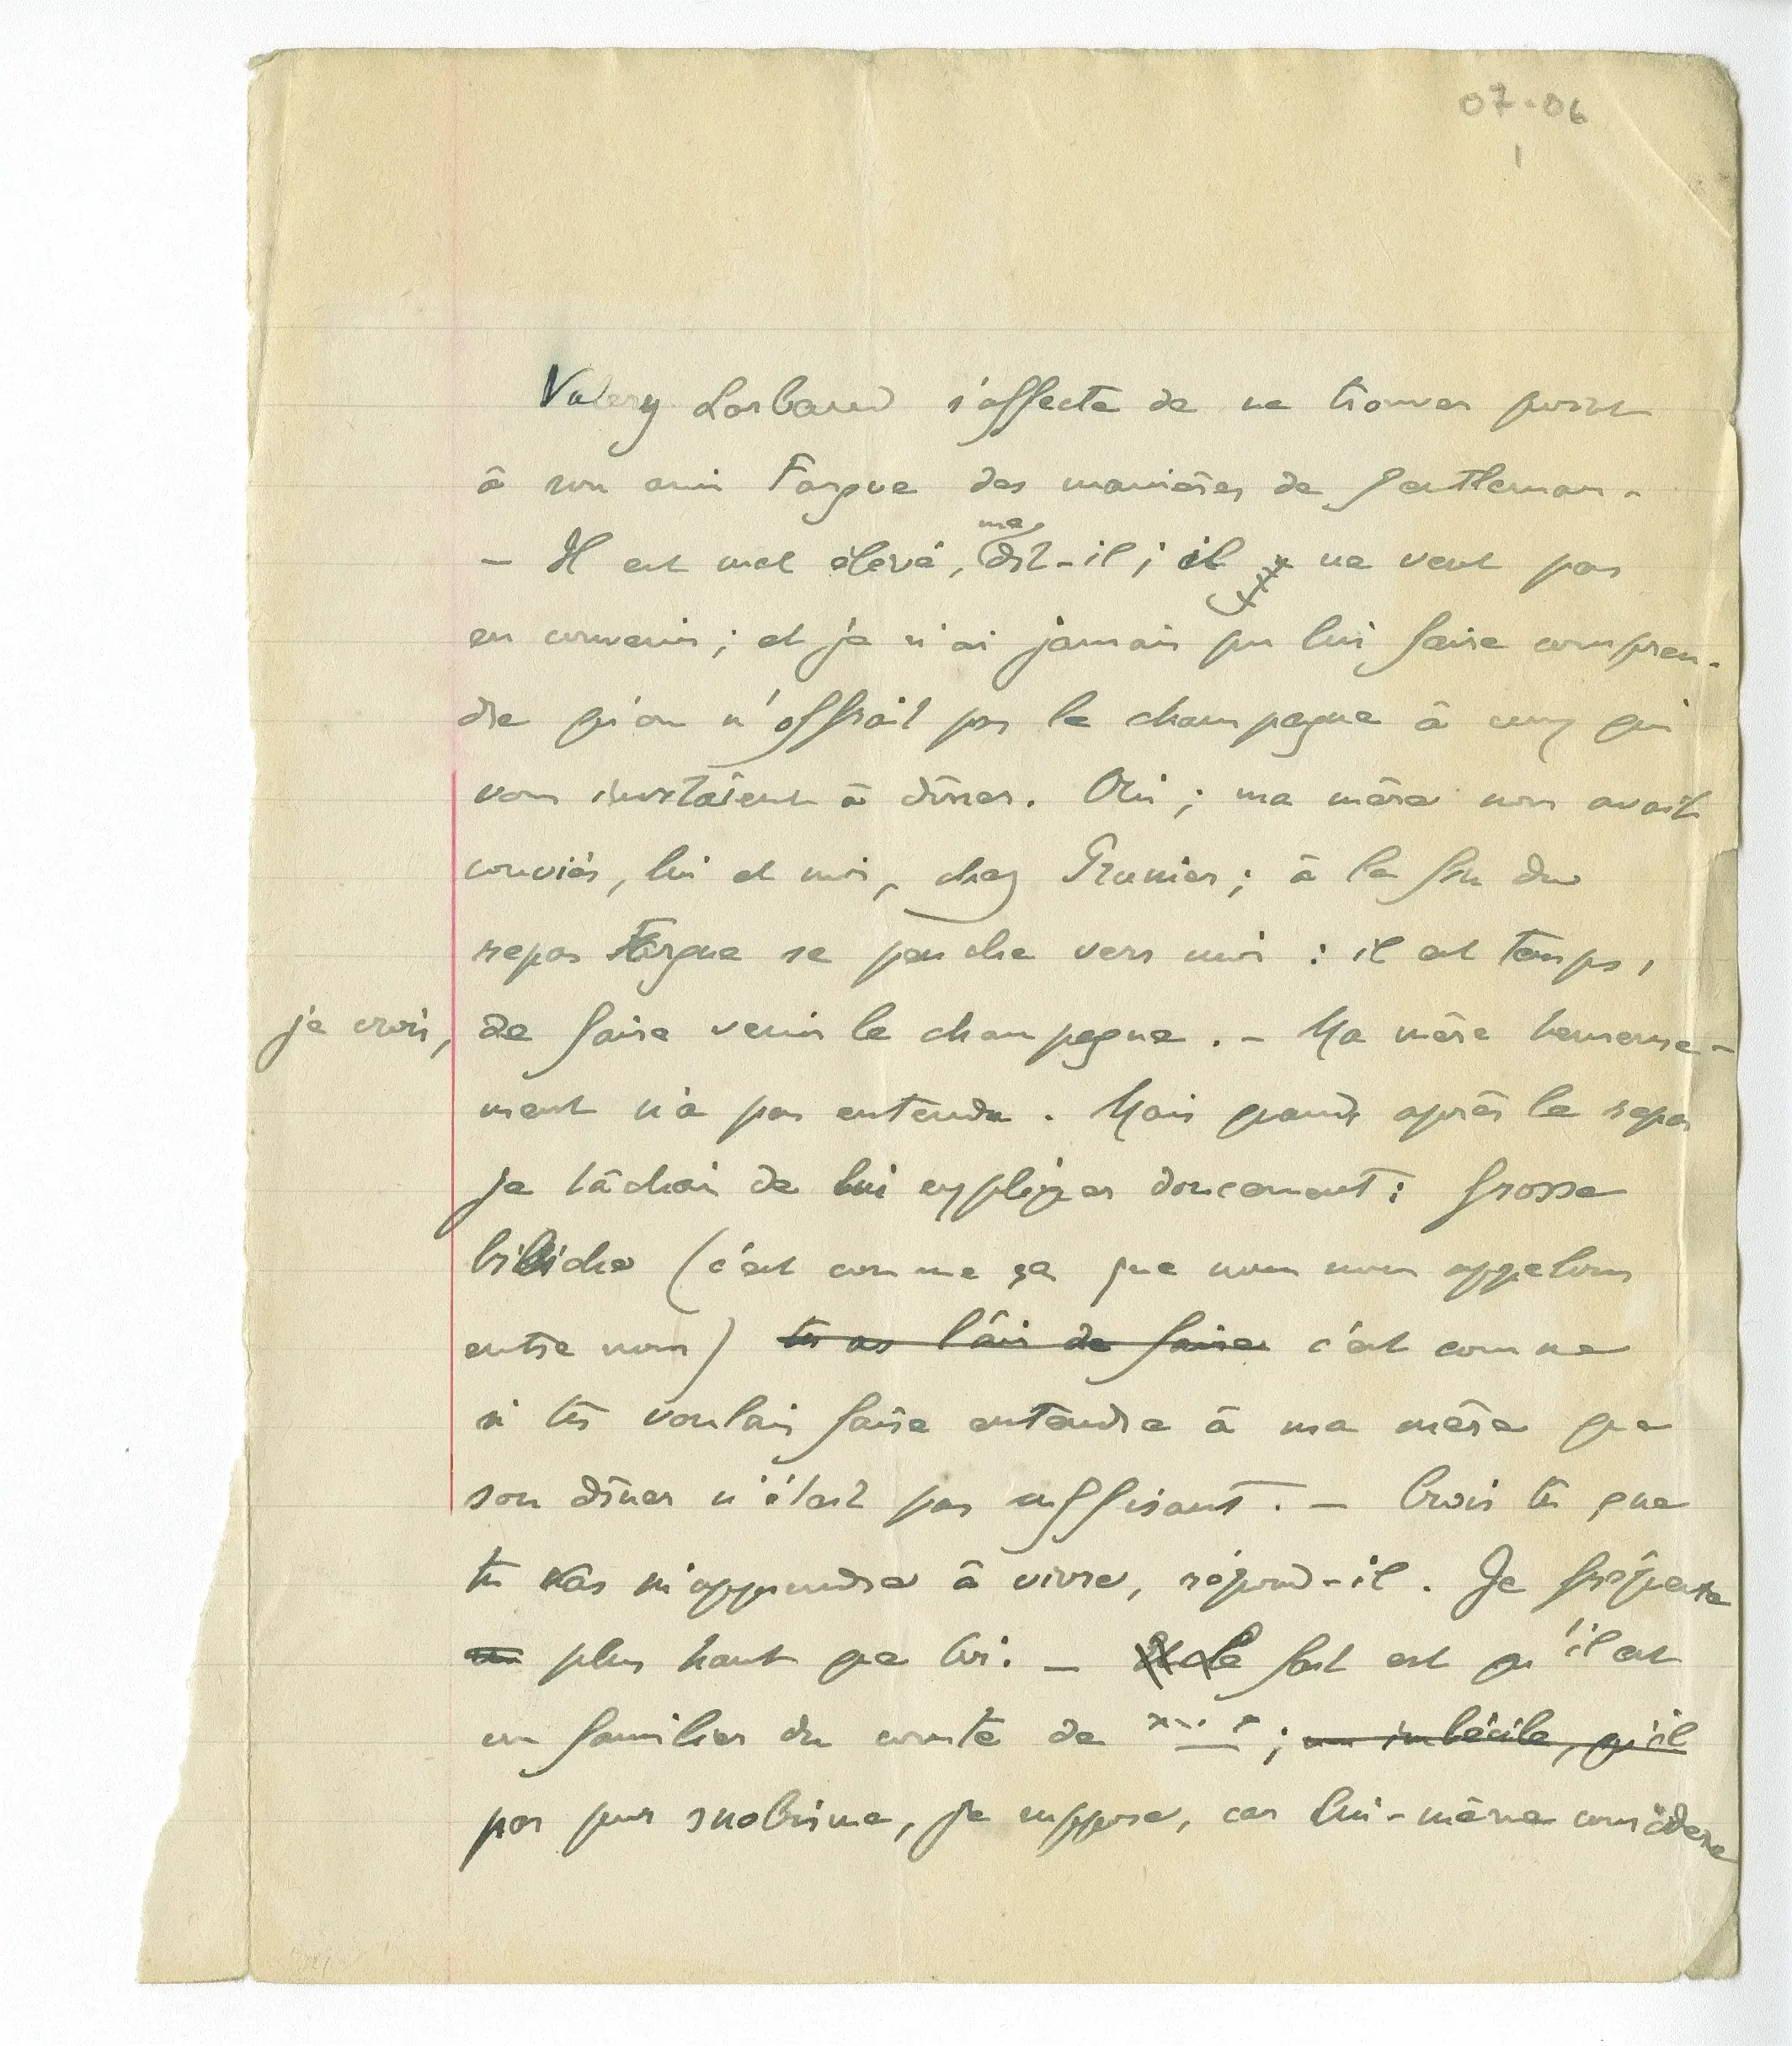 07-06
1
Valery Larbaud s'affecte de ne trouver point
à son ami Fargue des manières de gentleman.
me
– Il est mal élevé, dit-il ; il y ne veut pas
en convenir ; et je n'ai jamais pu lui faire compren-
dre qu'on n'offrait pas le champagne à ceux qui
vous invitaient à dîner. Oui ; ma mère nous avait
conviés, lui et moi, chez Prunier ; à la fin du
repas Fargue se penche vers moi : il est temps,
je crois, de faire venir le champagne. – Ma mère heureuse-
ment n'a pas entendu. Mais quand, après le repas
je tâchai de lui expliquer doucement : Grosse
bibiche (c'est comme ça que nous nous appelons
entre nous) tu as l'air de faire c'est comme
si tu voulais faire entendre à ma mère que
son dîner n'était pas suffisant. – Crois tu que
tu vas m'apprendre à vivre, répond-il. Je fréquente
plus haut que toi. – Et le fait est qu'il est
un familier du comte de x... x ; un imbécile, qu'il
par pur snobisme, je suppose, car lui-même considère